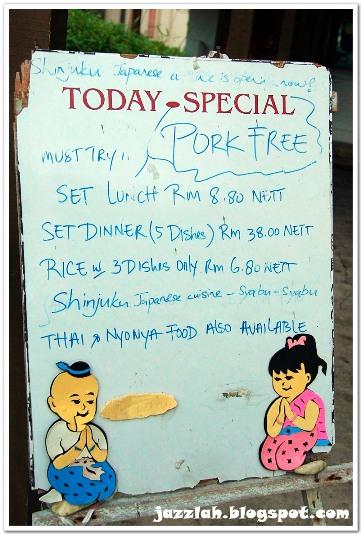 Shinjuku Japanese is now!
TODAY SPECIAL
PORK FREE
MUST TRY!!
SET LUNCH RM 8.80 NETT
SET DINNER (5 DISHES) RM 38.00 NETT
RICE W 3 DISHES ONLY RM 6.80 NETT
Shinjuku Japanese cuisine - Syabu - Syabu
THAI & NYONYA FOOD ALSO AVAILABLE
jazzlah.blogspot.com